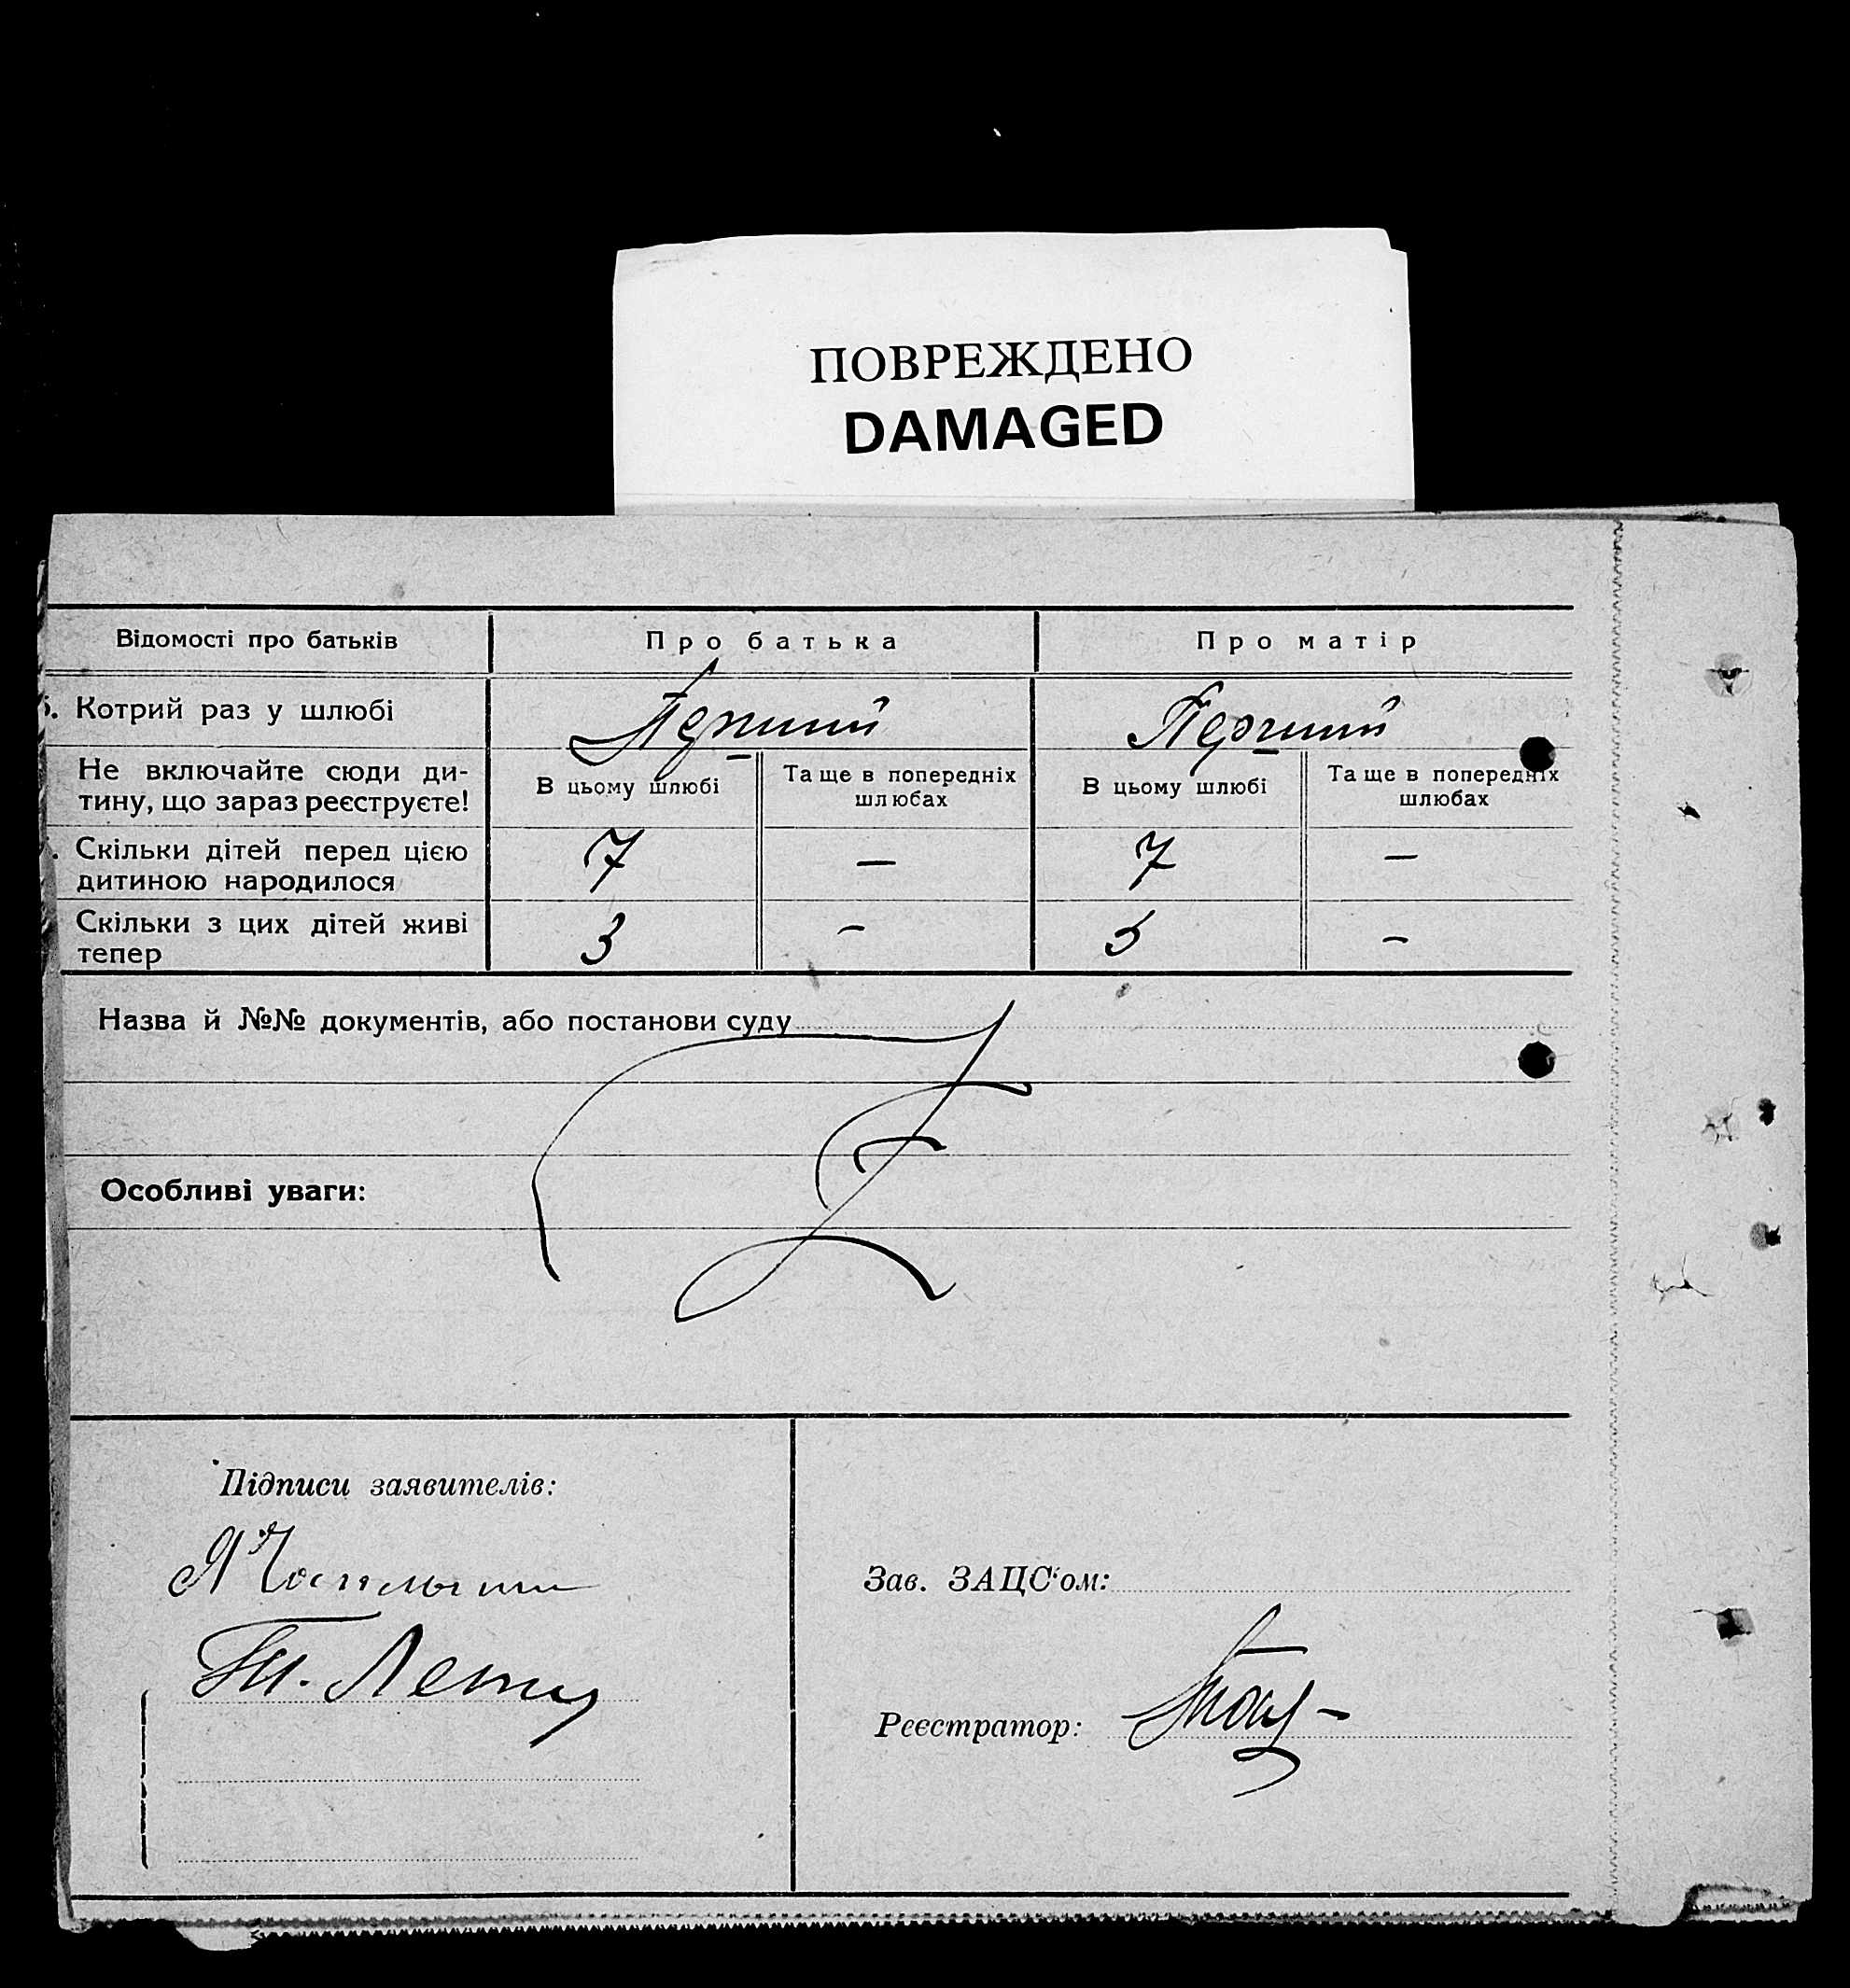 ПОВРЕЖДЕНО
DAMAGED
Відомості про батьків Про батька Про матір
Котрий раз у шлюбі Перший Перший
Не включайте сюди ди-
тину, що зараз реєструєте!
В цьому шлюбі Та ще в попередніх
шлюбах
В цьому шлюбі Та ще в попередніх
шлюбах
Скільки дітей перед цією
дитиною народилося
7 — 7 —
Скільки з цих дітей живі
тепер
3 — 3 —
Назва й №№ документів, або постанови суду
Особливі уваги:
Підписи заявителів:
Зав. ЗАЦС'ом:
Реєстратор: